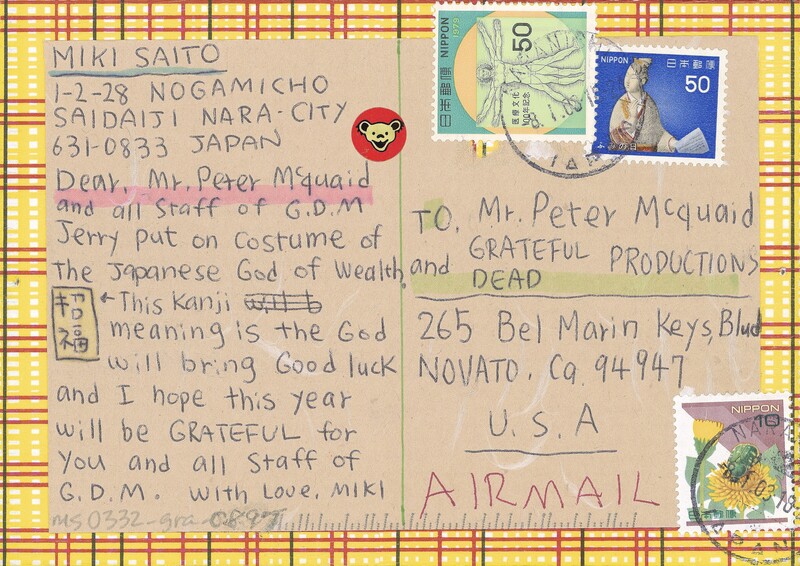 MIKI SAITO
1-2-28 NOGAMICHO
SAIDAIJI NARA-CITY
631-0833 JAPAN
Dear, Mr. Peter McQuaid
and all Staff of G.D.M
Jerry put on costume of
the Japanese God of Wealth.
招福
←This Kanji
meaning is the God
will bring Good luck
and I hope this year
will be GRATEFUL for
You and all Staff of
G.D.M. with Love, MIKI
ms0332-gra-0897
NIPPON 1979
50
日本郵便
医療文化
100年記念
NIPPON
日本郵便
50
ふみの日
TO, Mr. Peter McQuaid
and GRATEFUL DEAD PRODUCTIONS
265 Bel Marin Keys, Blvd
NOVATO, Ca 94947
U.S.A
AIRMAIL
NIPPON
10
日本郵便
NARA
JAPAN